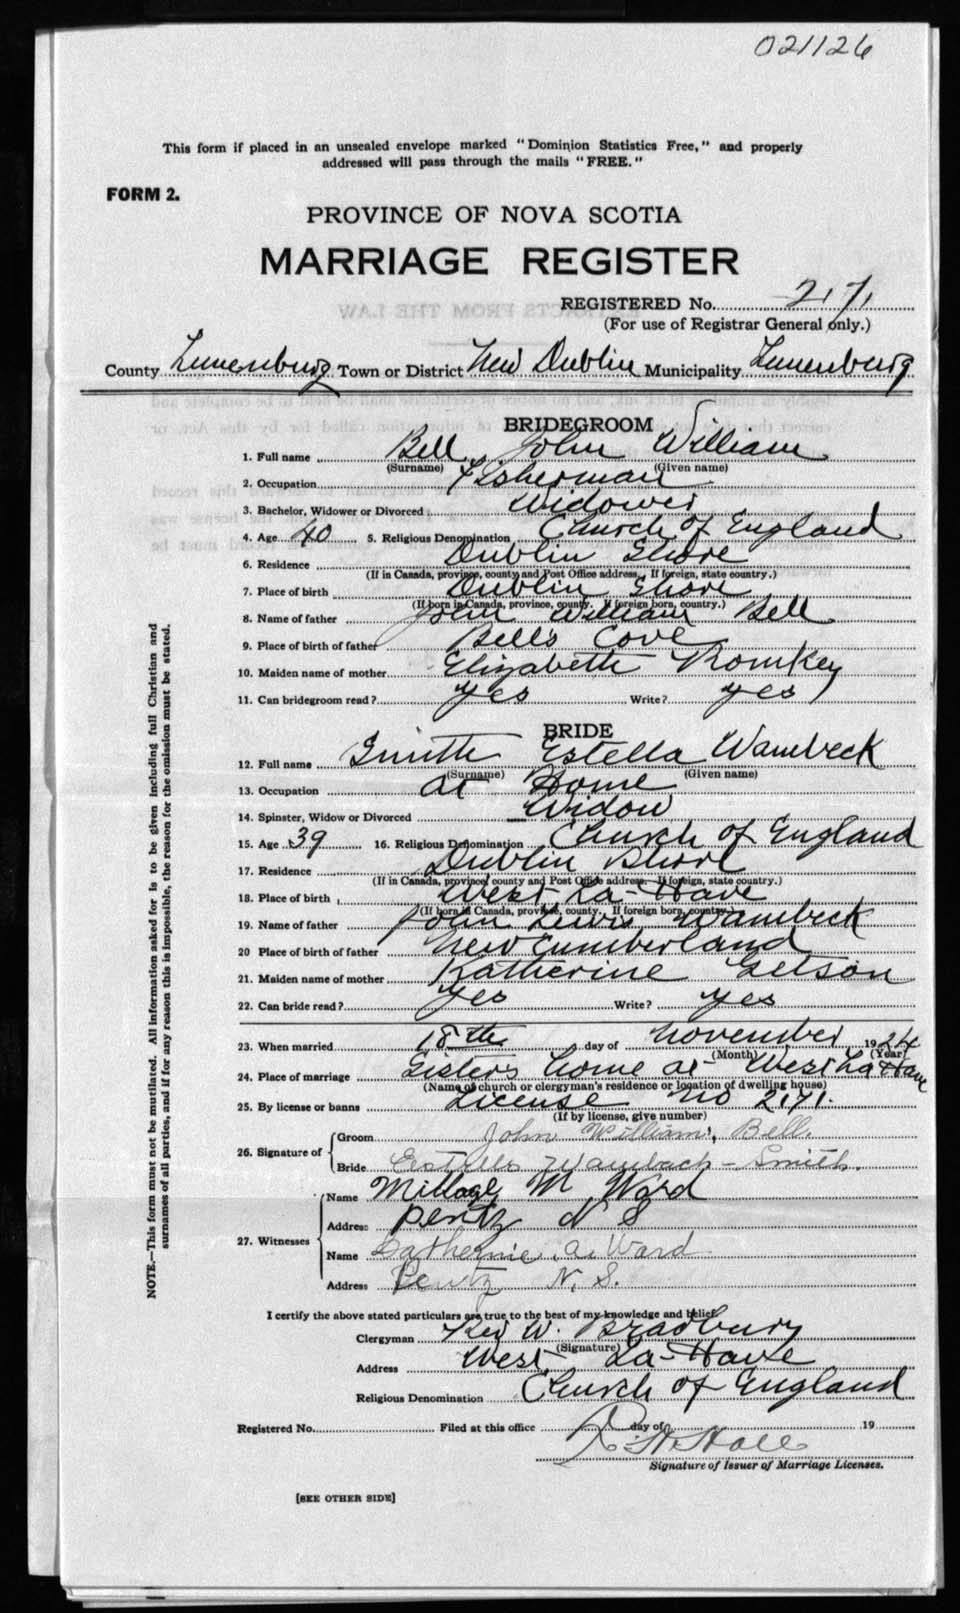 021126
This form if placed in an unsealed envelope marked "Dominion Statistics Free," and properly
addressed will pass through the mails "FREE."
FORM 2.
PROVINCE OF NOVA SCOTIA
MARRIAGE REGISTER
REGISTERED No. 2171
(For use of Registrar General only.)
County Lunenburg Town or District New Dublin Municipality Lunenburg
BRIDEGROOM
1. Full name Bell, John William
(Surname) (Given name)
2. Occupation Fisherman
3. Bachelor, Widower or Divorced Widower
4. Age 40 5. Religious Denomination Church of England
6. Residence Dublin Shore
(If in Canada, province, county and Post Office address. If foreign, state country.)
7. Place of birth Dublin Shore
(If born in Canada, province, county. If foreign born, country.)
8. Name of father John William Bell
9. Place of birth of father Bells Cove
10. Maiden name of mother Elizabeth Romkey
11. Can bridegroom read? yes Write? yes
BRIDE
12. Full name Smith Estella Wambeck
(Surname) (Given name)
13. Occupation at Home
14. Spinster, Widow or Divorced Widow
15. Age 39 16. Religious Denomination Church of England
17. Residence Dublin Shore
(If in Canada, province, county and Post Office address. If foreign, state country.)
18. Place of birth West La-Have
(If born in Canada, province, county. If foreign born, country.)
19. Name of father John Lewis Wambeck
20 Place of birth of father New Cumberland
21. Maiden name of mother Katherine Getson
22. Can bride read? yes Write? yes
23. When married 18th day of November 1924
(Month) (Year)
24. Place of marriage Sisters home at West La Have
(Name of church or clergyman's residence or location of dwelling house)
25. By license or banns License No 2171.
(If by license, give number)
26. Signature of Groom John William, Bell.
Bride Estella Wambach - Smith.
27. Witnesses Name Millage M Ward
Address Pentz N S
Name Catherine A. Ward
Address Pentz N. S.
I certify the above stated particulars are true to the best of my knowledge and belief.
Clergyman Rev W. Bradbury
(Signature)
Address West La-Have
Religious Denomination Church of England
Registered No. Filed at this office day of 19
R. H. Hall
Signature of Issuer of Marriage Licenses.
[SEE OTHER SIDE]
NOTE.—This form must not be mutilated. All information asked for is to be given including full Christian and
surnames of all parties, and if for any reason this is impossible, the reason for the omission must be stated.